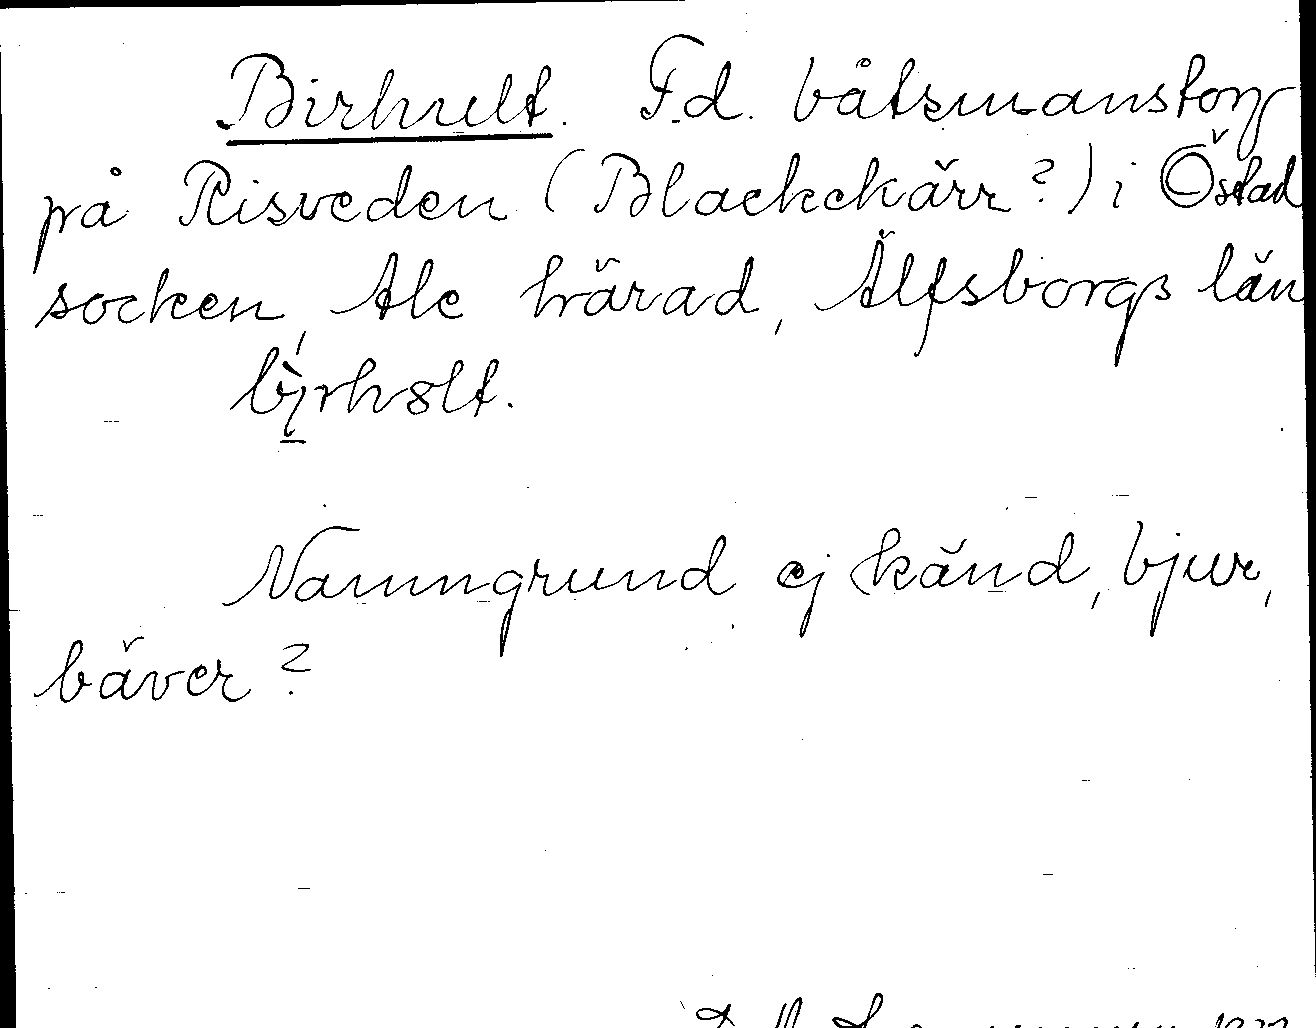 Birhult. F.d. båtsmanstorp
på Risveden (Blackekärr?) i Östad
socken, Ale härad, Älfsborgs län
bỳrhƨlt.
Namngrund ej känd, bjur,
bäver?